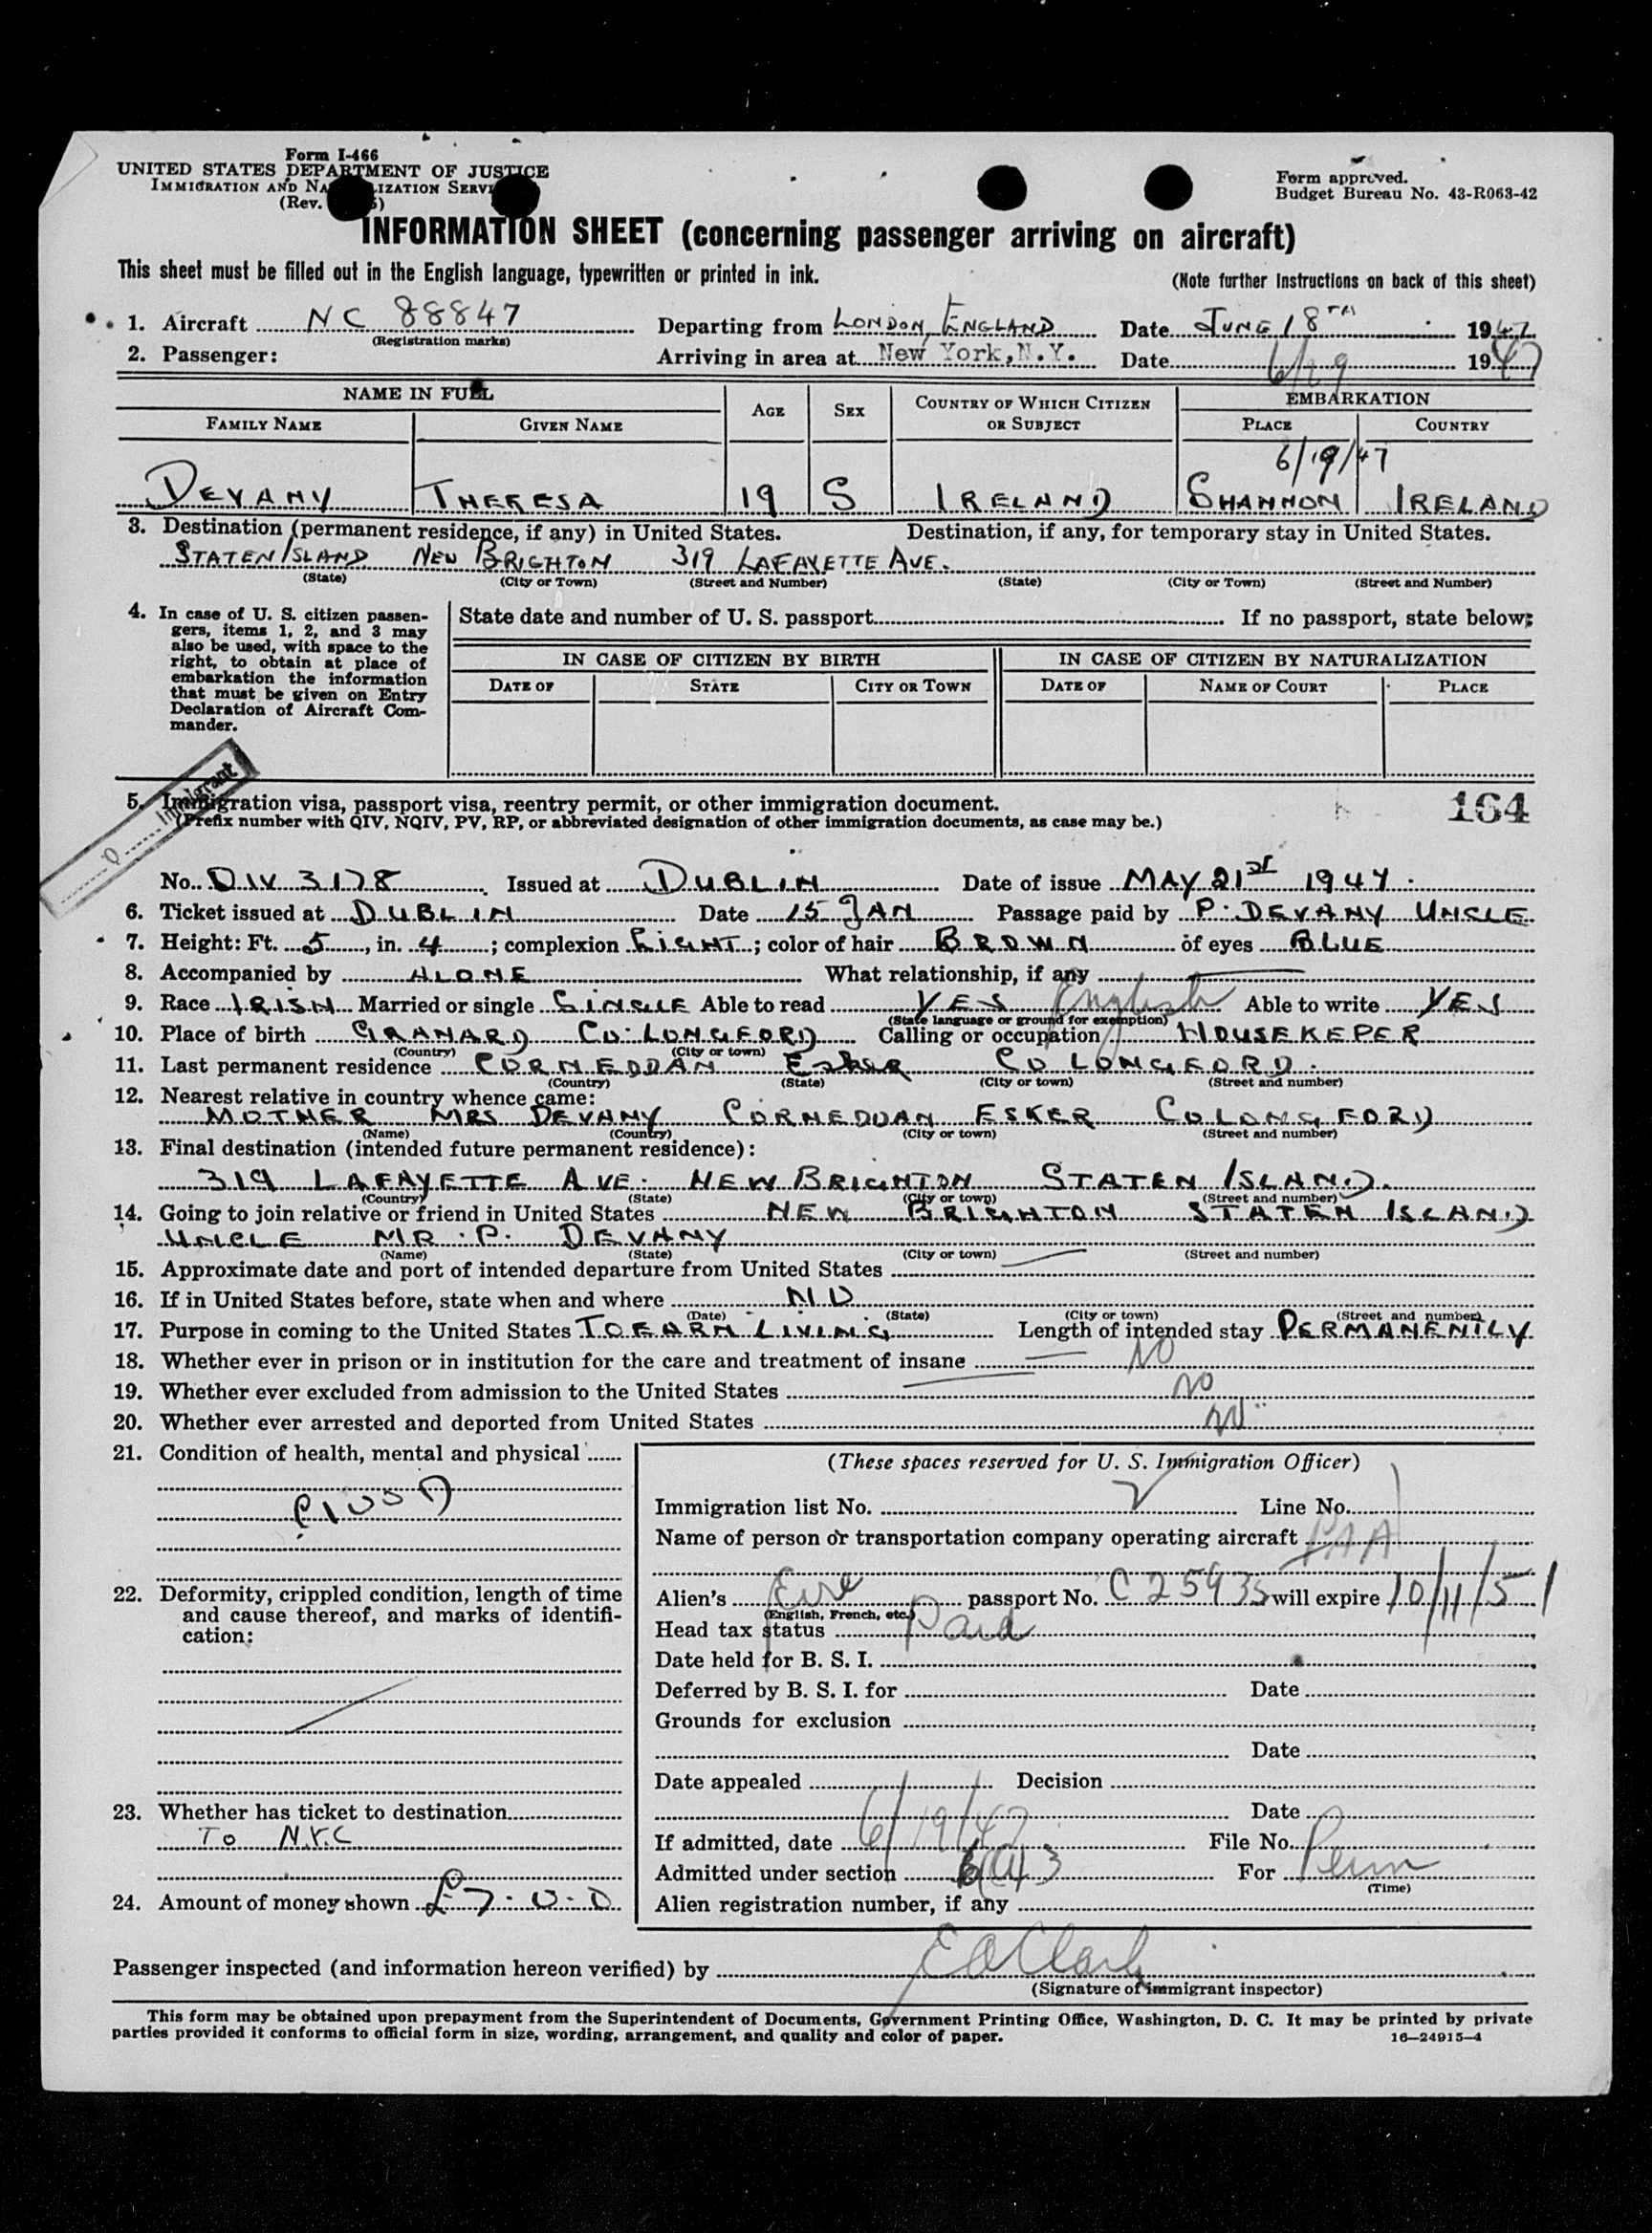 Form I-466
UNITED STATES DEPARTMENT OF JUSTICE
IMMIGRATION AND NA LIZATION SERVI
(Rev. 5)
Form approved.
Budget Bureau No. 43-R063-42
INFORMATION SHEET (concerning passenger arriving on aircraft)
This sheet must be filled out in the English language, typewritten or printed in ink.
(Note further Instructions on back of this sheet)
1. Aircraft NC 88847 Departing from LONDON, ENGLAND Date JUNE 18TH 1947
(Registration marks)
2. Passenger: Arriving in area at New York, N.Y. Date 6/19 1947
NAME IN FULL AGE SEX COUNTRY OF WHICH CITIZEN OR SUBJECT EMBARKATION
FAMILY NAME GIVEN NAME PLACE COUNTRY
6/19/47
DEVANY THERESA 19 S IRELAND SHANNON IRELAND
3. Destination (permanent residence, if any) in United States. Destination, if any, for temporary stay in United States.
STATEN ISLAND NEW BRIGHTON 319 LAFAYETTE AVE.
(State) (City or Town) (Street and Number) (State) (City or Town) (Street and Number)
4. In case of U. S. citizen passen-
gers, items 1, 2, and 3 may
also be used, with space to the
right, to obtain at place of
embarkation the information
that must be given on Entry
Declaration of Aircraft Com-
mander.
State date and number of U. S. passport If no passport, state below:
IN CASE OF CITIZEN BY BIRTH IN CASE OF CITIZEN BY NATURALIZATION
DATE OF STATE CITY OR TOWN DATE OF NAME OF COURT PLACE
Immigrant
5. Immigration visa, passport visa, reentry permit, or other immigration document.
(Prefix number with QIV, NQIV, PV, RP, or abbreviated designation of other immigration documents, as case may be.)
164
No. QIV 3178 Issued at DUBLIN Date of issue MAY 21st 1947.
6. Ticket issued at DUBLIN Date 15 JAN Passage paid by P. DEVANY UNCLE
7. Height: Ft. 5, in. 4; complexion LIGHT; color of hair BROWN of eyes BLUE
8. Accompanied by ALONE What relationship, if any
9. Race IRISH Married or single SINGLE Able to read YES English Able to write YES
(State language or ground for exemption)
10. Place of birth GRANARD CO. LONGFORD Calling or occupation HOUSEKEPER
(Country) (City or town)
11. Last permanent residence CORNEDDAN Esker CO LONGFORD.
(Country) (State) (City or town) (Street and number)
12. Nearest relative in country whence came:
MOTHER MRS DEVANY CORNEDDAN ESKER CO LONGFORD
(Name) (Country) (City or town) (Street and number)
13. Final destination (intended future permanent residence):
319 LAFAYETTE AVE. NEW BRIGHTON STATEN ISLAND.
(Country) (State) (City or town) (Street and number)
14. Going to join relative or friend in United States NEW BRIGHTON STATEN ISLAND
UNCLE MR. P. DEVANY
(Name) (State) (City or town) (Street and number)
15. Approximate date and port of intended departure from United States
16. If in United States before, state when and where NO
(Date) (State) (City or town) (Street and number)
17. Purpose in coming to the United States TO EARN LIVING Length of intended stay PERMANENTLY
18. Whether ever in prison or in institution for the care and treatment of insane NO
19. Whether ever excluded from admission to the United States NO
20. Whether ever arrested and deported from United States NO
21. Condition of health, mental and physical
GOOD
22. Deformity, crippled condition, length of time
and cause thereof, and marks of identifi-
cation:
23. Whether has ticket to destination
TO N.Y.C
24. Amount of money shown £7-0-0
(These spaces reserved for U. S. Immigration Officer)
Immigration list No. Line No.
Name of person or transportation company operating aircraft PAA
Alien's Eire passport No. C 25935 will expire 10/11/51
(English, French, etc.)
Head tax status Paid
Date held for B. S. I.
Deferred by B. S. I. for Date
Grounds for exclusion
Date
Date appealed Decision
Date
If admitted, date 6/19/47 File No.
Admitted under section 6(a)3 For Perm
(Time)
Alien registration number, if any
Passenger inspected (and information hereon verified) by E A Clark
(Signature of immigrant inspector)
This form may be obtained upon prepayment from the Superintendent of Documents, Government Printing Office, Washington, D. C. It may be printed by private
parties provided it conforms to official form in size, wording, arrangement, and quality and color of paper. 16—24915-4